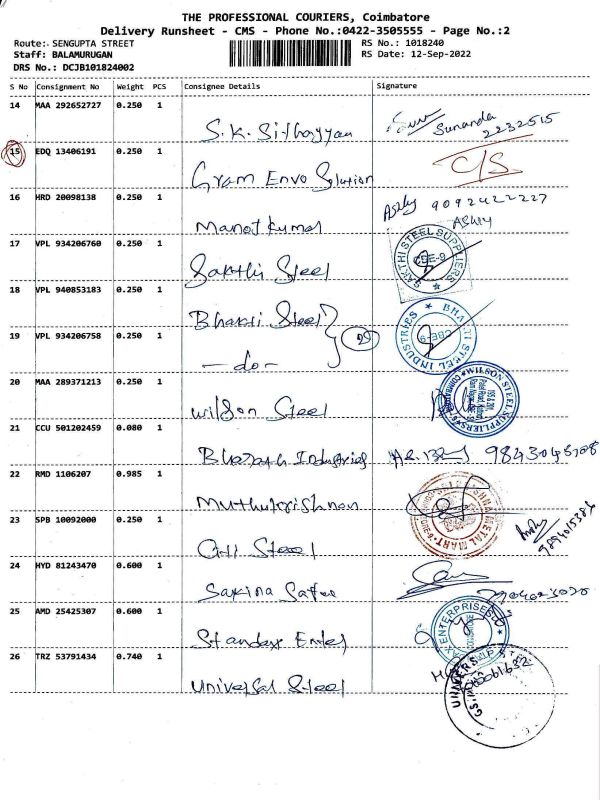 THE PROFESSIONAL COURIERS, Coimbatore
Delivery Runsheet - CMS - Phone No.:0422-3505555 - Page No.:2
Route: SENGUPTA STREET
RS No.: 1018240
Staff: BALAMURUGAN
RS Date: 12-Sep-2022
DRS No.: DCJB101824002
S No Consignment No Weight PCS Consignee Details Signature
14 MAA 292652727 0.250 1
S.K. Sunanda
2232515
15 EDQ 13406191 0.250 1
Gram Envo Solution C/S
16 HRD 20098138 0.250 1
9092422227
Manot Kumar
17 VPL 934206760 0.250 1
Sakthi Steel
SAKTHI STEEL SUPPLIERS CBE-9
18 VPL 940853183 0.250 1
Steel
BHARTI STEEL INDUSTRIES CBE-9
19 VPL 934206758 0.250 1
-do-
20 MAA 289371213 0.250 1
Wilson Steel
WILSON STEEL SUPPLIERS
21 CCU 501202459 0.080 1
Bharath Industries
22 RMD 1106207 0.985 1
Muthukrishnan
METAL MART
23 SPB 10092000 0.250 1
Steel
24 HYD 81243470 0.600 1
Sakina
25 AMD 25425307 0.600 1
Standax Enter
ENTERPRISES
26 TRZ 53791434 0.740 1
Universal Steel